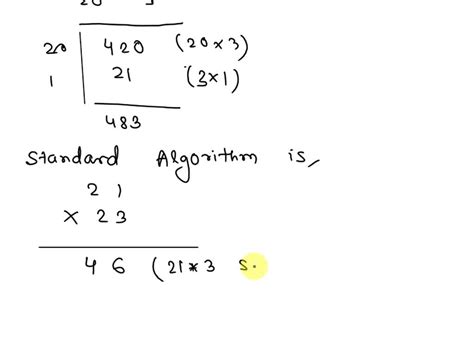 20 | 420 (20×3)
1 | 21 (3×1)
483
Standard Algorithm is,
21
× 23
46 (21*3 s.